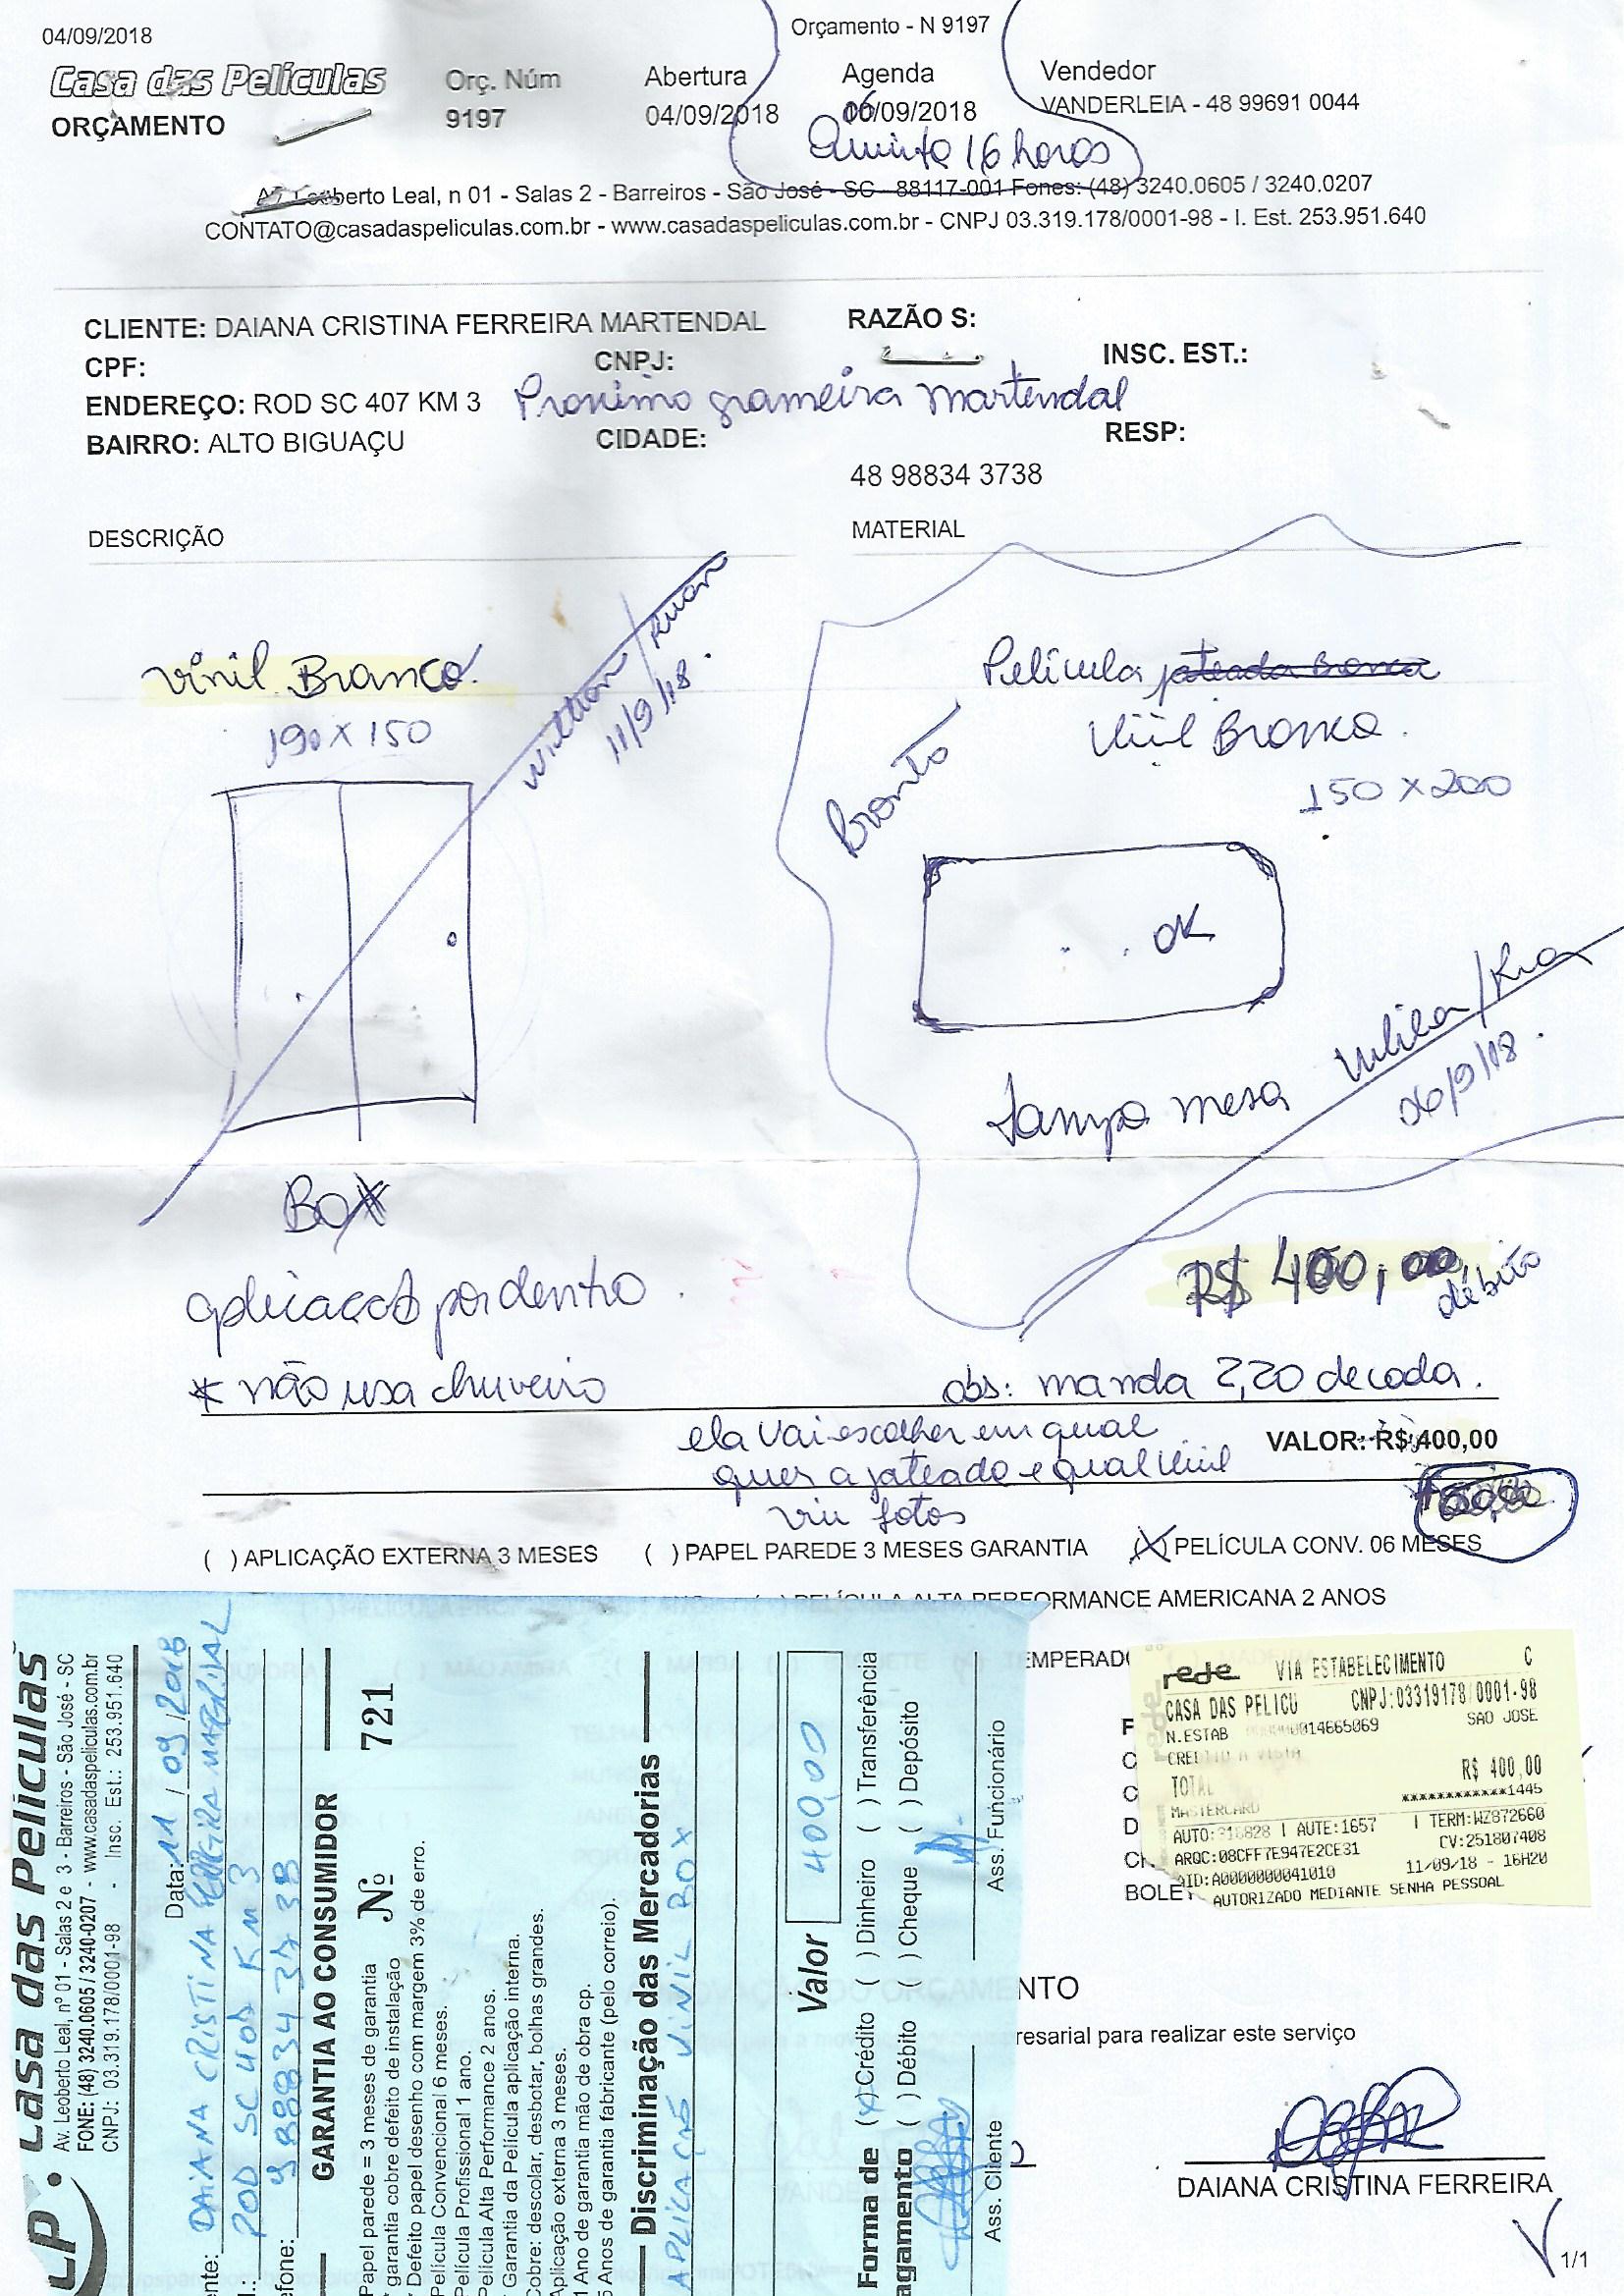 04/09/2018
Orçamento - N 9197
Casa das Películas
ORÇAMENTO
Orç. Núm
9197
Abertura
04/09/2018
Agenda
06/09/2018
Quinta 16 horas
Vendedor
VANDERLEIA - 48 99691 0044
Leoberto Leal, n 01 - Salas 2 - Barreiros - São José - SC - 88117-001 Fones: (48) 3240.0605 / 3240.0207
CONTATO@casadaspeliculas.com.br - www.casadaspeliculas.com.br - CNPJ 03.319.178/0001-98 - I. Est. 253.951.640
CLIENTE: DAIANA CRISTINA FERREIRA MARTENDAL
RAZÃO S:
CPF:
CNPJ:
INSC. EST.:
ENDEREÇO: ROD SC 407 KM 3 Proximo grameira Martendal
BAIRRO: ALTO BIGUAÇU
CIDADE:
RESP:
48 98834 3738
DESCRIÇÃO
MATERIAL
Vinil Branco.
190 X 150
Willian/Kuan
11/9/18.
BOX
aplicação por dentro.
* não usa chuveiro
Película jateada branca
Vinil Branca.
150 X 200
Pronto
OK
Tampo mesa
06/9/18.
R$ 400,00
débito
obs: manda 2,20 de cada.
ela vai escolher em qual
quer a jateado e qual vinil
viu fotos
VALOR: R$ 400,00
( ) APLICAÇÃO EXTERNA 3 MESES ( ) PAPEL PAREDE 3 MESES GARANTIA (X) PELÍCULA CONV. 06 MESES
PELÍCULA ALTA PERFORMANCE AMERICANA 2 ANOS
TEMPERADO
BOLET
NTO
resarial para realizar este serviço
DAIANA CRISTINA FERREIRA
1/1
LP. Casa das Películas
Av. Leoberto Leal, nº 01 - Salas 2 e 3 - Barreiros - São José - SC
FONE: (48) 3240.0605 / 3240-0207 - www.casadaspeliculas.com.br
CNPJ: 03.319.178/0001-98 - Insc. Est.: 253.951.640
Data: 11 / 09 / 2018
nte: DAIANA CRISTINA FERREIRA MARTENDAL
ROD SC 407 KM 3
efone: 9 8834 3738
GARANTIA AO CONSUMIDOR
Papel parede = 3 meses de garantia
* garantia cobre defeito de instalação
* Defeito papel desenho com margem 3% de erro.
Película Convencional 6 meses.
Película Profissional 1 ano.
Película Alta Performance 2 anos.
* Garantia da Película aplicação interna.
Cobre: descolar, desbotar, bolhas grandes.
Aplicação externa 3 meses.
1 Ano de garantia mão de obra cp.
5 Anos de garantia fabricante (pelo correio).
Nº 721
Discriminação das Mercadorias
APLICAÇÃO VINIL BOX
Valor 400,00
Forma de
agamento
(X) Crédito ( ) Dinheiro ( ) Transferência
( ) Débito ( ) Cheque ( ) Depósito
Ass. Cliente
Ass. Funcionário
rede VIA ESTABELECIMENTO C
CASA DAS PELICU CNPJ:03319178/0001-98
N.ESTAB 014665069 SAO JOSE
CREDITO A VISTA
TOTAL R$ 400,00
MASTERCARD ************1445
AUTO: 316828 | AUTE:1657 | TERM:WZ872660
ARQC:08CFF7E947E2CE31 CV:251807408
AID:A0000000041010 11/09/18 - 16H20
AUTORIZADO MEDIANTE SENHA PESSOAL